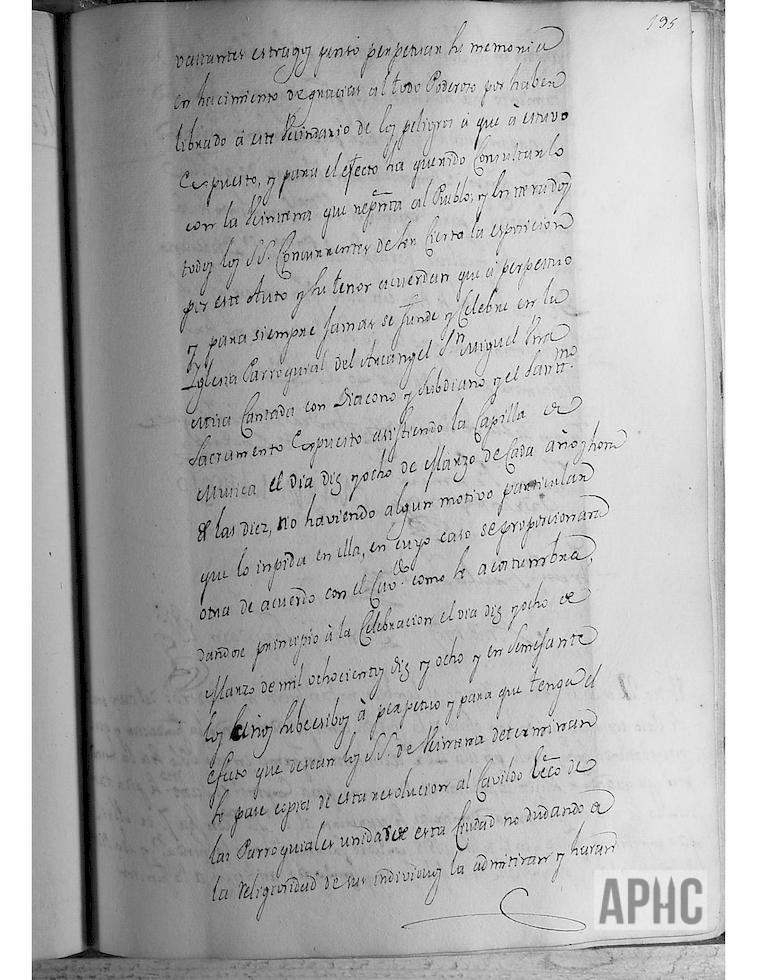 195
vastantes estragos quiso perpetuar la memoria
en hacimiento de gracias al todo Poderoso por haber
librado â este Vecindario de los peligros â que â estuvo
Expuesto, y para el efecto ha querido Consultarlo
con la que repres.ta al Pueblo; y Enterados
todos los SS. Concurrentes de ser Cierta la esposicion
por este Auto y su tenor acuerdan que â perpetuo
y para siempre Jamas se funde y Celebre en la
Yglesia Parroquial del Arcangel Sn Miguel Una
Misa Cantada con Diacono y Subdiacono y el Santmo.
Sacramento Expuesto asistiendo la Capilla de
Musica el dia diez y ocho de Marzo de Cada año y hora
de las diez, no haviendo algun motivo particular
que lo inpida en ella, en cuyo caso se proporcionara
otra de acuerdo con el Cavdo. como se acostumbra,
dandose principio â la Celebracion el dia diez y ocho de
Marzo de mil ochocientos diez y ocho y en Semejante
los â perpetuo y para que tenga el
efecto que desean los SS. de determinan
se pase copia de esta resolucion al Cavildo Ecco de
las Parroquiales unidas de esta Ciudad no dudando de
la Religiosidad de sus individuos la admitiran y haran
APHC